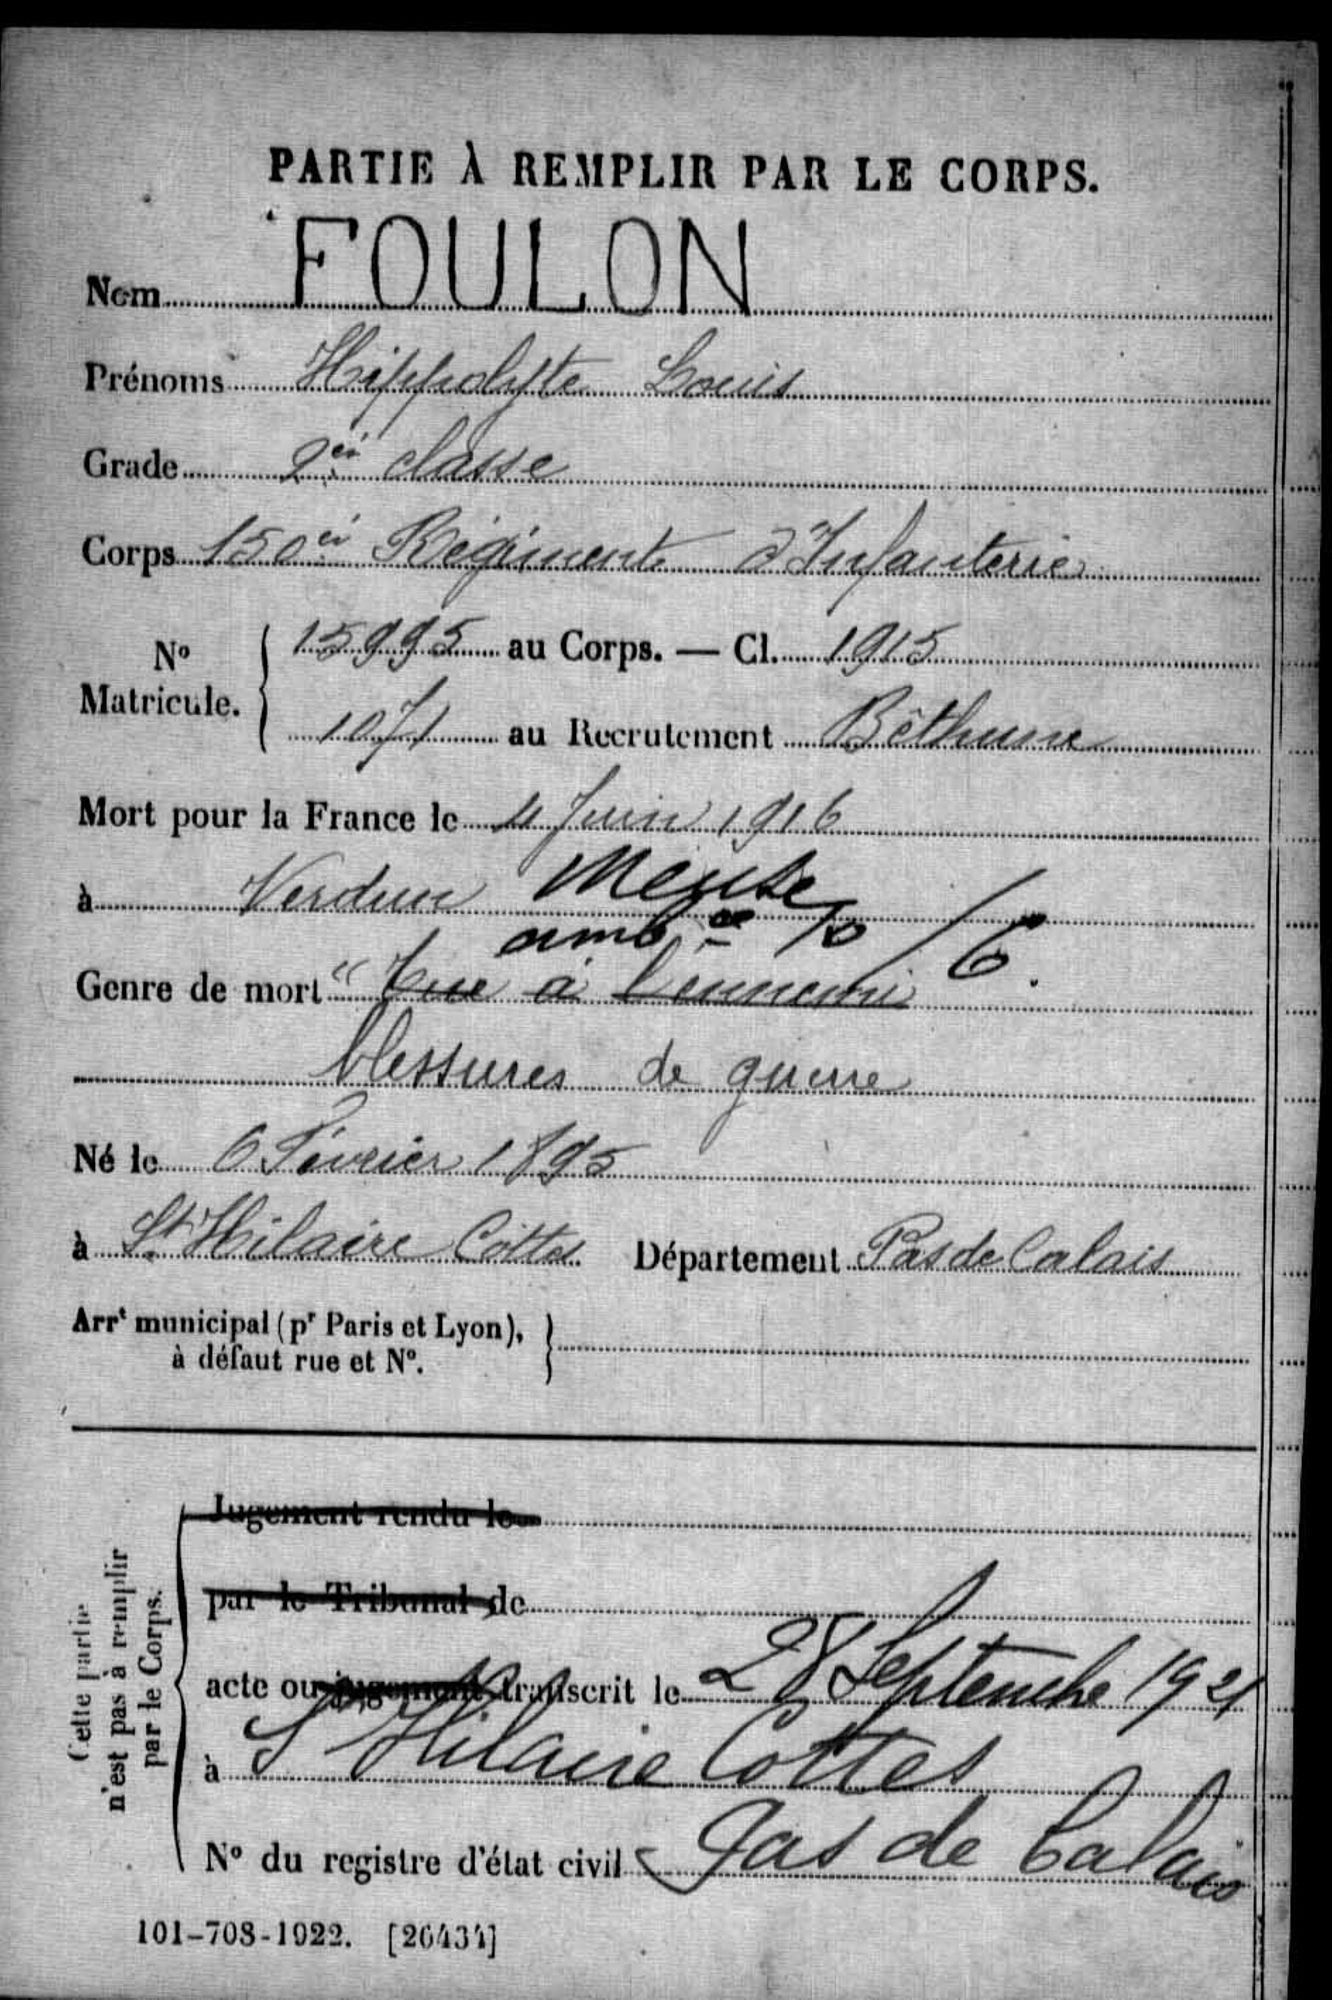 PARTIE À REMPLIR PAR LE CORPS.
Nom FOULON
Prénoms Hippolyte Louis
Grade 2è classe
Corps 150è Régiment d'Infanterie
N° Matricule. 15995 au Corps. — Cl. 1915
1071 au Recrutement Béthune
Mort pour la France le 4 Juin 1916
à Verdun Meuse
ambce 10/6.
Genre de mort "Tué à l'ennemi
blessures de guerre
Né le 6 Février 1895
à St Hilaire Cottes Département Pas de Calais
Arrt municipal (pr Paris et Lyon),
à défaut rue et N°.
Cette partie
n'est pas à remplir
par le Corps.
Jugement rendu le
par le Tribunal de
acte ou jugement transcrit le 28 Septembre 1921
à St Hilaire Cottes
N° du registre d'état civil Pas de Calais
101-708-1922. [26434]